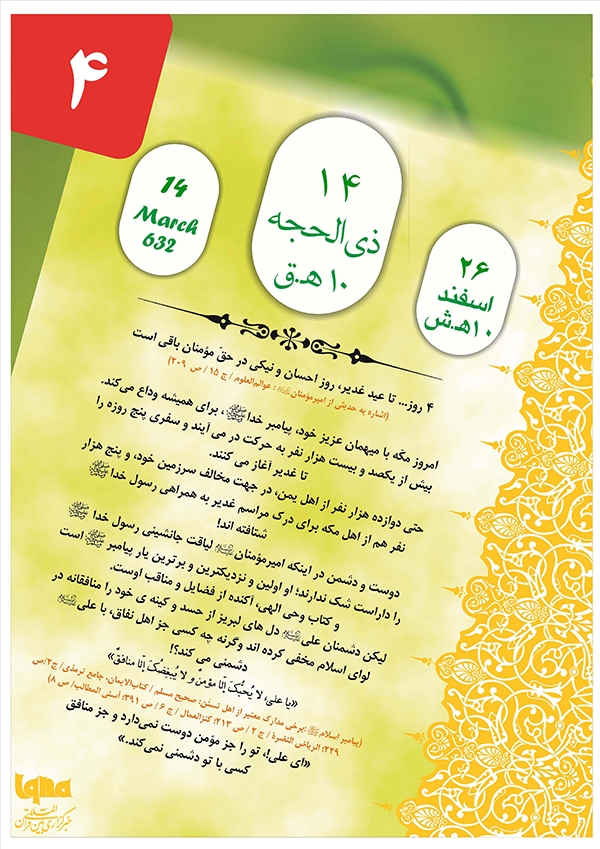 ۴
14
March
632
۱۴
ذی‌الحجه
۱۰ هـ.ق
۲۶
اسفند
۱۰ هـ.ش
۴ روز... تا عید غدیر، روز احسان و نیکی در حقّ مؤمنان باقی است
(اشاره به حدیثی از امیرمؤمنان: عوالم‌العلوم / ج ۱۵ / ص ۲۰۹)
امروز مکّه با میهمان عزیز خود، پیامبر خداﷺ، برای همیشه وداع می‌کند.
بیش از یکصد و بیست هزار نفر به حرکت در می آیند و سفری پنج روزه را
تا غدیر آغاز می کنند.
حتی دوازده هزار نفر از اهل یمن، در جهت مخالف سرزمین خود، و پنج هزار
نفر هم از اهل مکه برای درک مراسم غدیر به همراهی رسول خداﷺ
شتافته اند!
دوست و دشمن در اینکه امیرمؤمنان لیاقت جانشینی رسول خداﷺ
را داراست شک ندارند؛ او اولین و نزدیکترین و برترین یار پیامبرﷺ است
و کتاب وحی الهی، آکنده از فضایل و مناقب اوست.
لیکن دشمنان علی دل های لبریز از حسد و کینه ی خود را منافقانه در
لوای اسلام مخفی کرده اند وگرنه چه کسی جز اهل نفاق، با علی
دشمنی می کند؟!
«یا علی، لا یُحبُّکَ إلّا مؤمنٌ و لا یُبغِضُکَ إلّا منافقٌ»
(پیامبر اسلامﷺ: برخی مدارک معتبر از اهل تسنن: صحیح مسلم / کتاب‌الایمان، جامع ترمذی/ ج۲/ص
۲۲۹؛ الریاض النضرة / ج ۲ / ص ۲۱۳؛ کنزالعمال / ج ۶ / ص ۳۹۱؛ أسنی المطالب/ ص ۸)
«ای علی!، تو را جز مؤمن دوست نمی‌دارد و جز منافق
کسی با تو دشمنی نمی‌کند.»
iqna
خبرگزاری بین المللی قرآن